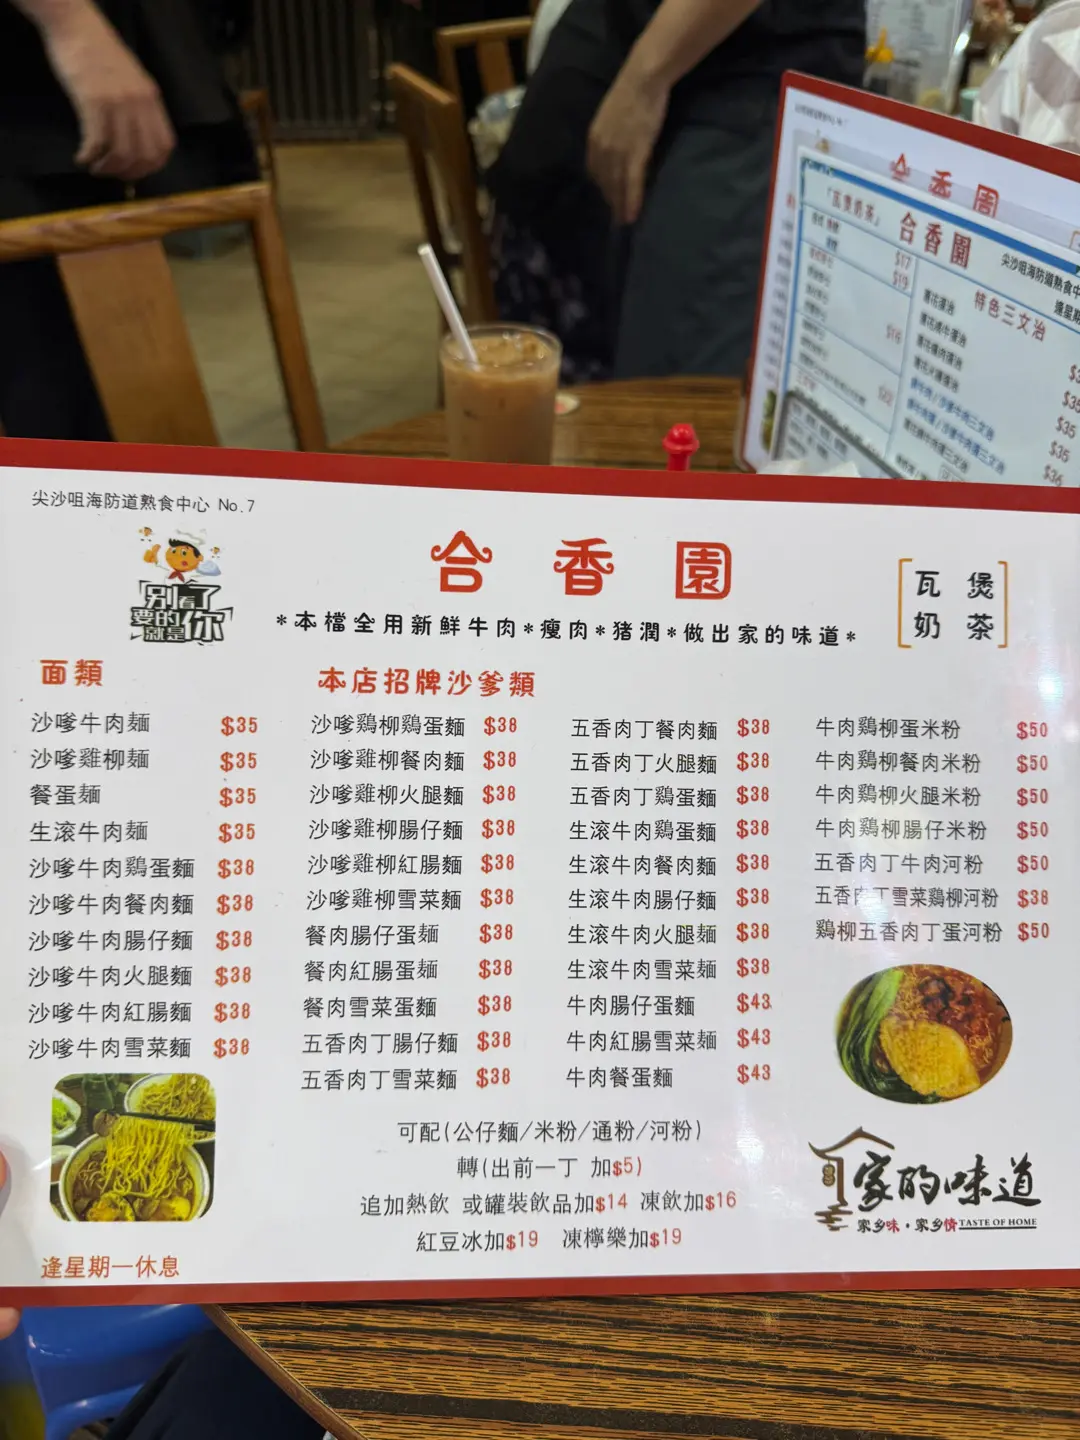 合香園
「瓦煲奶茶」
合香園
尖沙咀海防道熟食中
逢星期
$17
$19
特色三文治
$16
$22
$35
$35
$35
$36
尖沙咀海防道熟食中心 No.7
別看了
要的
就是你
合香園
瓦煲
奶茶
*本檔全用新鮮牛肉*瘦肉*猪潤*做出家的味道*
面類
沙嗲牛肉麵 $35
沙嗲雞柳麵 $35
餐蛋麵 $35
生滚牛肉麵 $35
沙嗲牛肉鷄蛋麵 $38
沙嗲牛肉餐肉麵 $38
沙嗲牛肉腸仔麵 $38
沙嗲牛肉火腿麵 $38
沙嗲牛肉紅腸麵 $38
沙嗲牛肉雪菜麵 $38
逢星期一休息
本店招牌沙爹類
沙嗲鷄柳鷄蛋麵 $38
沙嗲雞柳餐肉麵 $38
沙嗲雞柳火腿麵 $38
沙嗲雞柳腸仔麵 $38
沙嗲雞柳紅腸麵 $38
沙嗲雞柳雪菜麵 $38
餐肉腸仔蛋麵 $38
餐肉紅腸蛋麵 $38
餐肉雪菜蛋麵 $38
五香肉丁腸仔麵 $38
五香肉丁雪菜麵 $38
五香肉丁餐肉麵 $38
五香肉丁火腿麵 $38
五香肉丁鷄蛋麵 $38
生滚牛肉鷄蛋麵 $38
生滚牛肉餐肉麵 $38
生滚牛肉腸仔麵 $38
生滚牛肉火腿麵 $38
生滚牛肉雪菜麵 $38
牛肉腸仔蛋麵 $43
牛肉紅腸雪菜麵 $43
牛肉餐蛋麵 $43
牛肉鷄柳蛋米粉 $50
牛肉鷄柳餐肉米粉 $50
牛肉鷄柳火腿米粉 $50
牛肉鷄柳腸仔米粉 $50
五香肉丁牛肉河粉 $50
五香肉丁雪菜鷄柳河粉 $38
鷄柳五香肉丁蛋河粉 $50
可配(公仔麵/米粉/通粉/河粉)
轉(出前一丁 加$5)
追加熱飲 或罐裝飲品加$14 凍飲加$16
紅豆冰加$19 凍檸樂加$19
家的味道
家乡味·家乡情 TASTE OF HOME